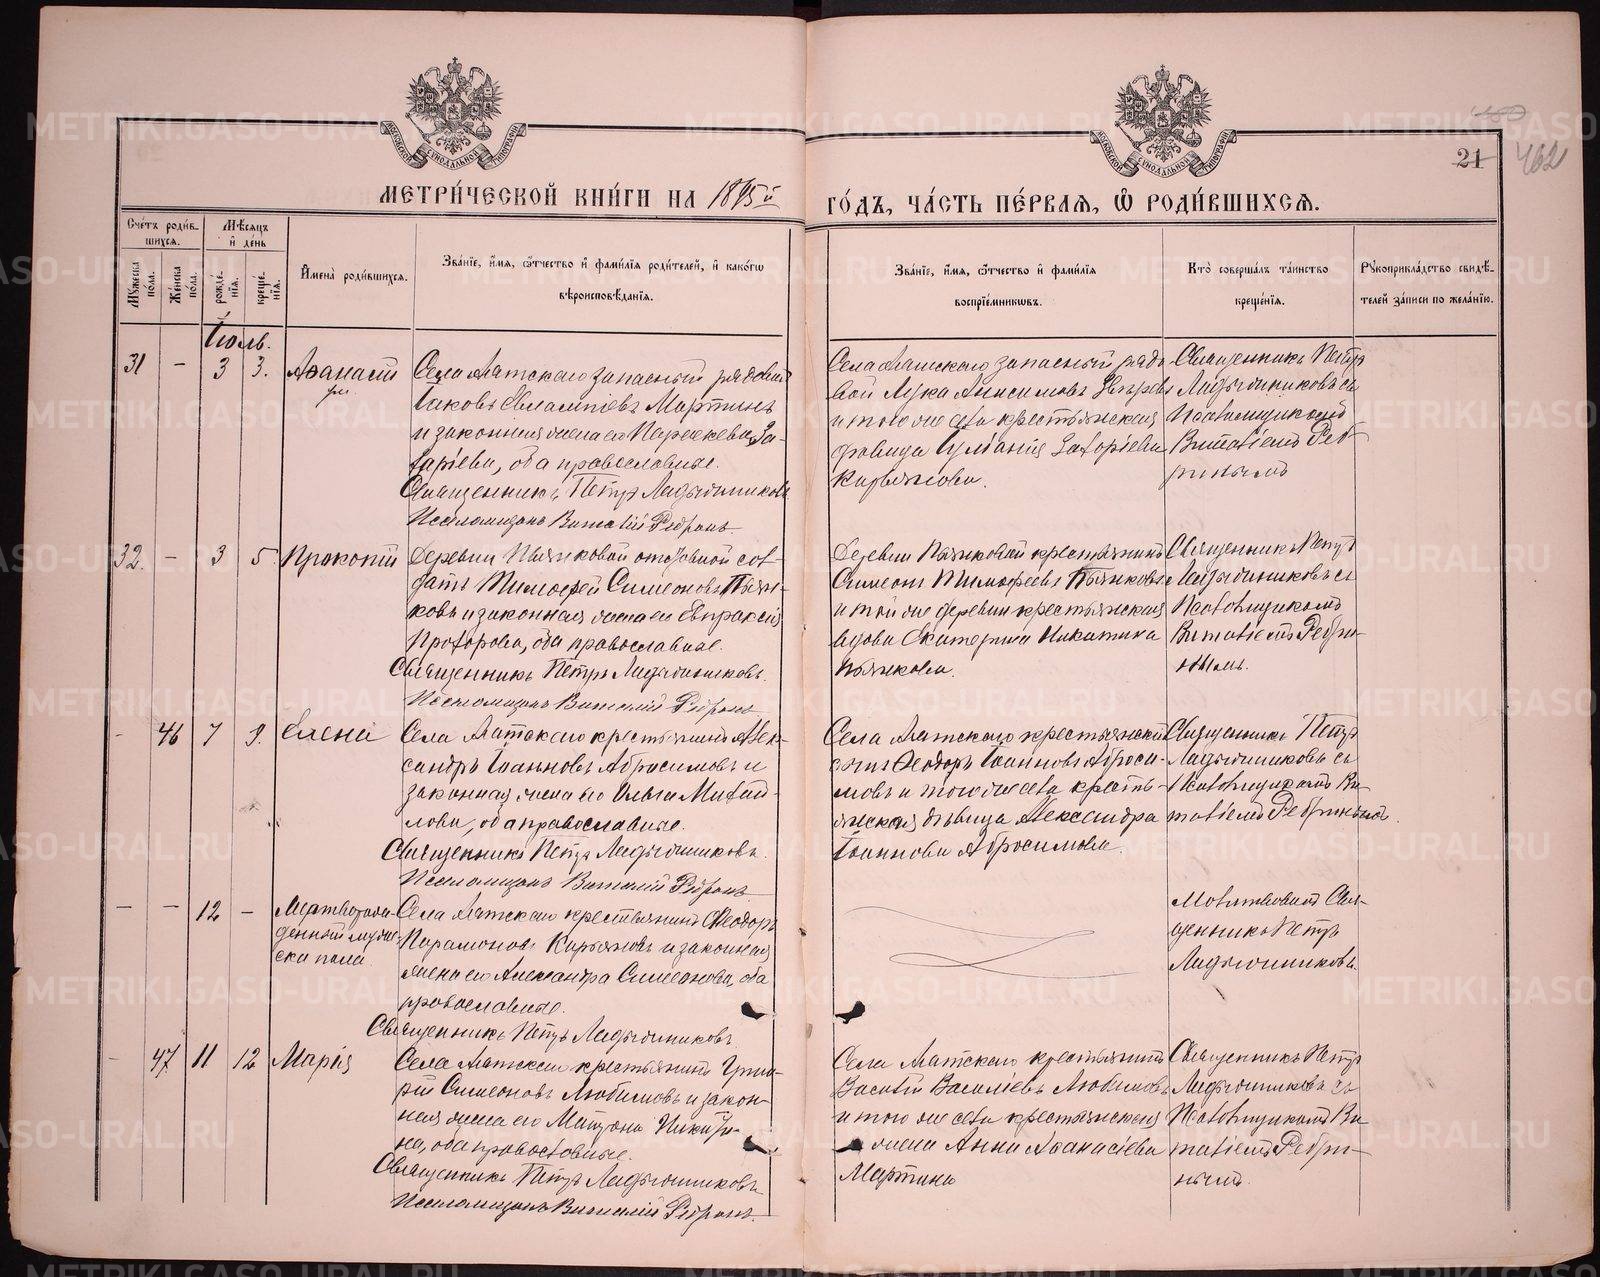 МОСКОВСКОЙ СУНОДАЛЬНОЙ ТИПОГРАФІИ
МОСКОВСКОЙ СУНОДАЛЬНОЙ ТИПОГРАФІИ
21 462
МЕТРИ́ЧЕСКОЙ КНИ́ГИ НА 1895й
ГО́ДЪ, ЧА́СТЬ ПЕ́РВАЯ, Ѡ҆ РОДИ́ВШИХСЯ.
Сче́тъ роди́вшихся.
Мѣ́сяцъ и҆ де́нь
Му́жеска по́ла.
Же́нска по́ла.
рожде́нія.
креще́нія.
И҆мена̀ роди́вшихся.
Зва́ніе, и҆́мя, ѻ҆́тчество и҆ фами́лія роди́телей, и҆ како́гѡ
вѣроисповѣ́данія.
Зва́ніе, и҆́мя, ѻ҆́тчество и҆ фами́лія
воспріе́мникѡвъ.
Кто̀ соверша́лъ та́инство
креще́нія.
Рꙋкоприкла́дство свидѣ́-
телей за́писи по жела́нію.
Іюль.
31 – 3 3. Аѳанасій
Села Аятскаго запасный рядовой
Іаковъ Евлампіевъ Мартинъ
и законная жена его Параскева За-
харіева, оба православные.
Священникъ Петръ Ладыжниковъ
Псаломщикъ Виталій Ребринъ
Села Аятскаго запасный рядо-
вой Лука Анисимовъ Звѣревъ
и того же села крестьянская
дѣвица Іуліанія Захаріева
Кирьянова.
Священникъ Петръ
Ладыжниковъ съ
Псаломщикомъ
Виталіемъ Реб-
ринымъ
32. – 3 5 Прокопій
Деревни Пьянковой отставной сол-
датъ Тимоѳей Симеоновъ Пьян-
ковъ и законная жена его Евпраксія
Прохорова, оба православные.
Священникъ Петръ Ладыжниковъ.
Псаломщикъ Виталій Ребринъ
Деревни Пьянковой крестьянинъ
Симеонъ Тимоѳеевъ Пьянковъ
и той же деревни крестьянская
вдова Екатерина Никитина
Пьянкова.
Священникъ Петръ
Ладыжниковъ съ
Псаломщикомъ
Виталіемъ Ребри-
нымъ.
- 46 7 9. Елена
Села Аятскаго крестьянинъ Алек-
сандръ Іоанновъ Абросимовъ и
законная жена его Ольга Михай-
лова, оба православные.
Священникъ Петръ Ладыжниковъ.
Псаломщикъ Виталій Ребринъ
Села Аятскаго крестьянскій
сынъ Ѳеодоръ Іоанновъ Аброси-
мовъ и того же села кресть-
янская дѣвица Александра
Іоаннова Абросимова.
Священникъ Петръ
Ладыжниковъ съ
Псаломщикомъ Ви-
таліемъ Ребринымъ.
– – 12 –
Мертворож-
денный муже-
ска пола.
Села Аятскаго крестьянинъ Ѳеодоръ
Парамоновъ Кирьяновъ и законная
жена его Александра Симеонова, оба
православные.
Священникъ Петръ Ладыжниковъ.
Молитвовалъ Свя-
щенникъ Петръ
Ладыжниковъ.
- 47 11 12 Марія
Села Аятскаго крестьянинъ Григо-
рій Симеоновъ Любимовъ и закон-
ная жена его Матрона Никити-
на, оба православные.
Священникъ Петръ Ладыжниковъ
Псаломщикъ Виталій Ребринъ.
Села Аятскаго крестьянинъ
Василій Василіевъ Любимовъ
и того же села крестьянская
жена Анна Аѳанасіева
Мартина
Священникъ Петръ
Ладыжниковъ съ
Псаломщикомъ Ви-
таліемъ Ребри-
нымъ.
METRIKI.GASO-URAL.RU